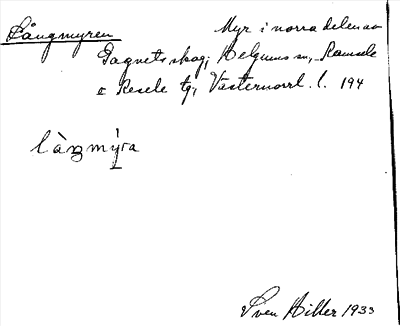 Långmyren Myr i norra delen av
Gagnets skog, Helgums sn, Ramsele
o Resele tg, Västernorrl. l. 194
làŋmýra
Sven Hiller 1933